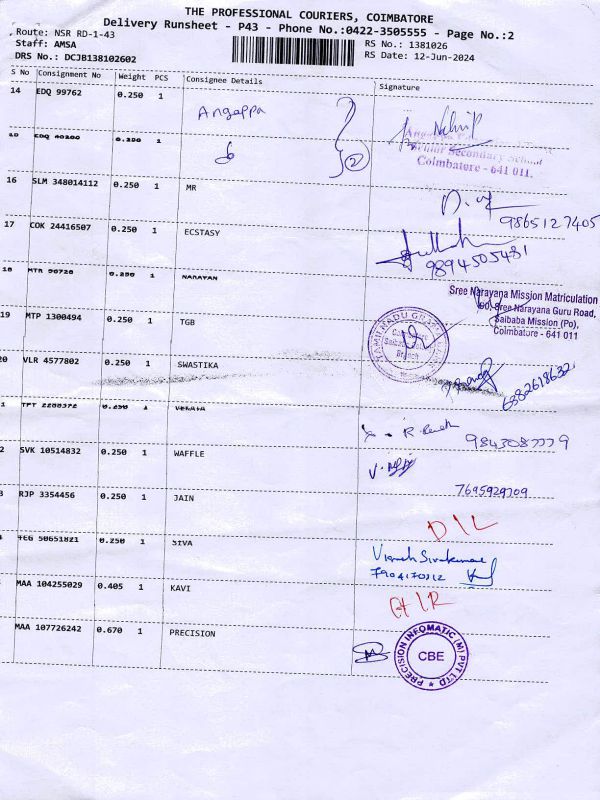 THE PROFESSIONAL COURIERS, COIMBATORE
Delivery Runsheet - P43 - Phone No.:0422-3505555 - Page No.:2
Route: NSR RD-1-43
Staff: AMSA
DRS No.: DCJB138102602
RS No.: 1381026
RS Date: 12-Jun-2024
S No Consignment No Weight PCS Consignee Details Signature
14 EDQ 99762 0.250 1 Angappa
0.250 1 2
Coimbatore - 641 011.
16 SLM 348014112 0.250 1 MR
9865127405
17 COK 24416507 0.250 1 ECSTASY
9894505481
18 MTR 90720 0.250 1 NARAYAN
Sree Narayana Mission Matriculation
Sree Narayana Guru Road,
Saibaba Mission (Po),
Coimbatore - 641 011
19 MTP 1300494 1 0.250 TGB
TAMILNADU GRAMA BANK
Branch
20 VLR 4577802 0.250 1 SWASTIKA
6382618632
1 0.250 1
2 SVK 10514832 0.250 1 WAFFLE
7695929709
3 RJP 3354456 0.250 1 JAIN
D/L
50651821 0.250 1 SIVA
MAA 104255029 0.405 1 KAVI
MAA 107726242 0.670 1 PRECISION
PRECISION INFOMATIC (M) PVT LTD
CBE